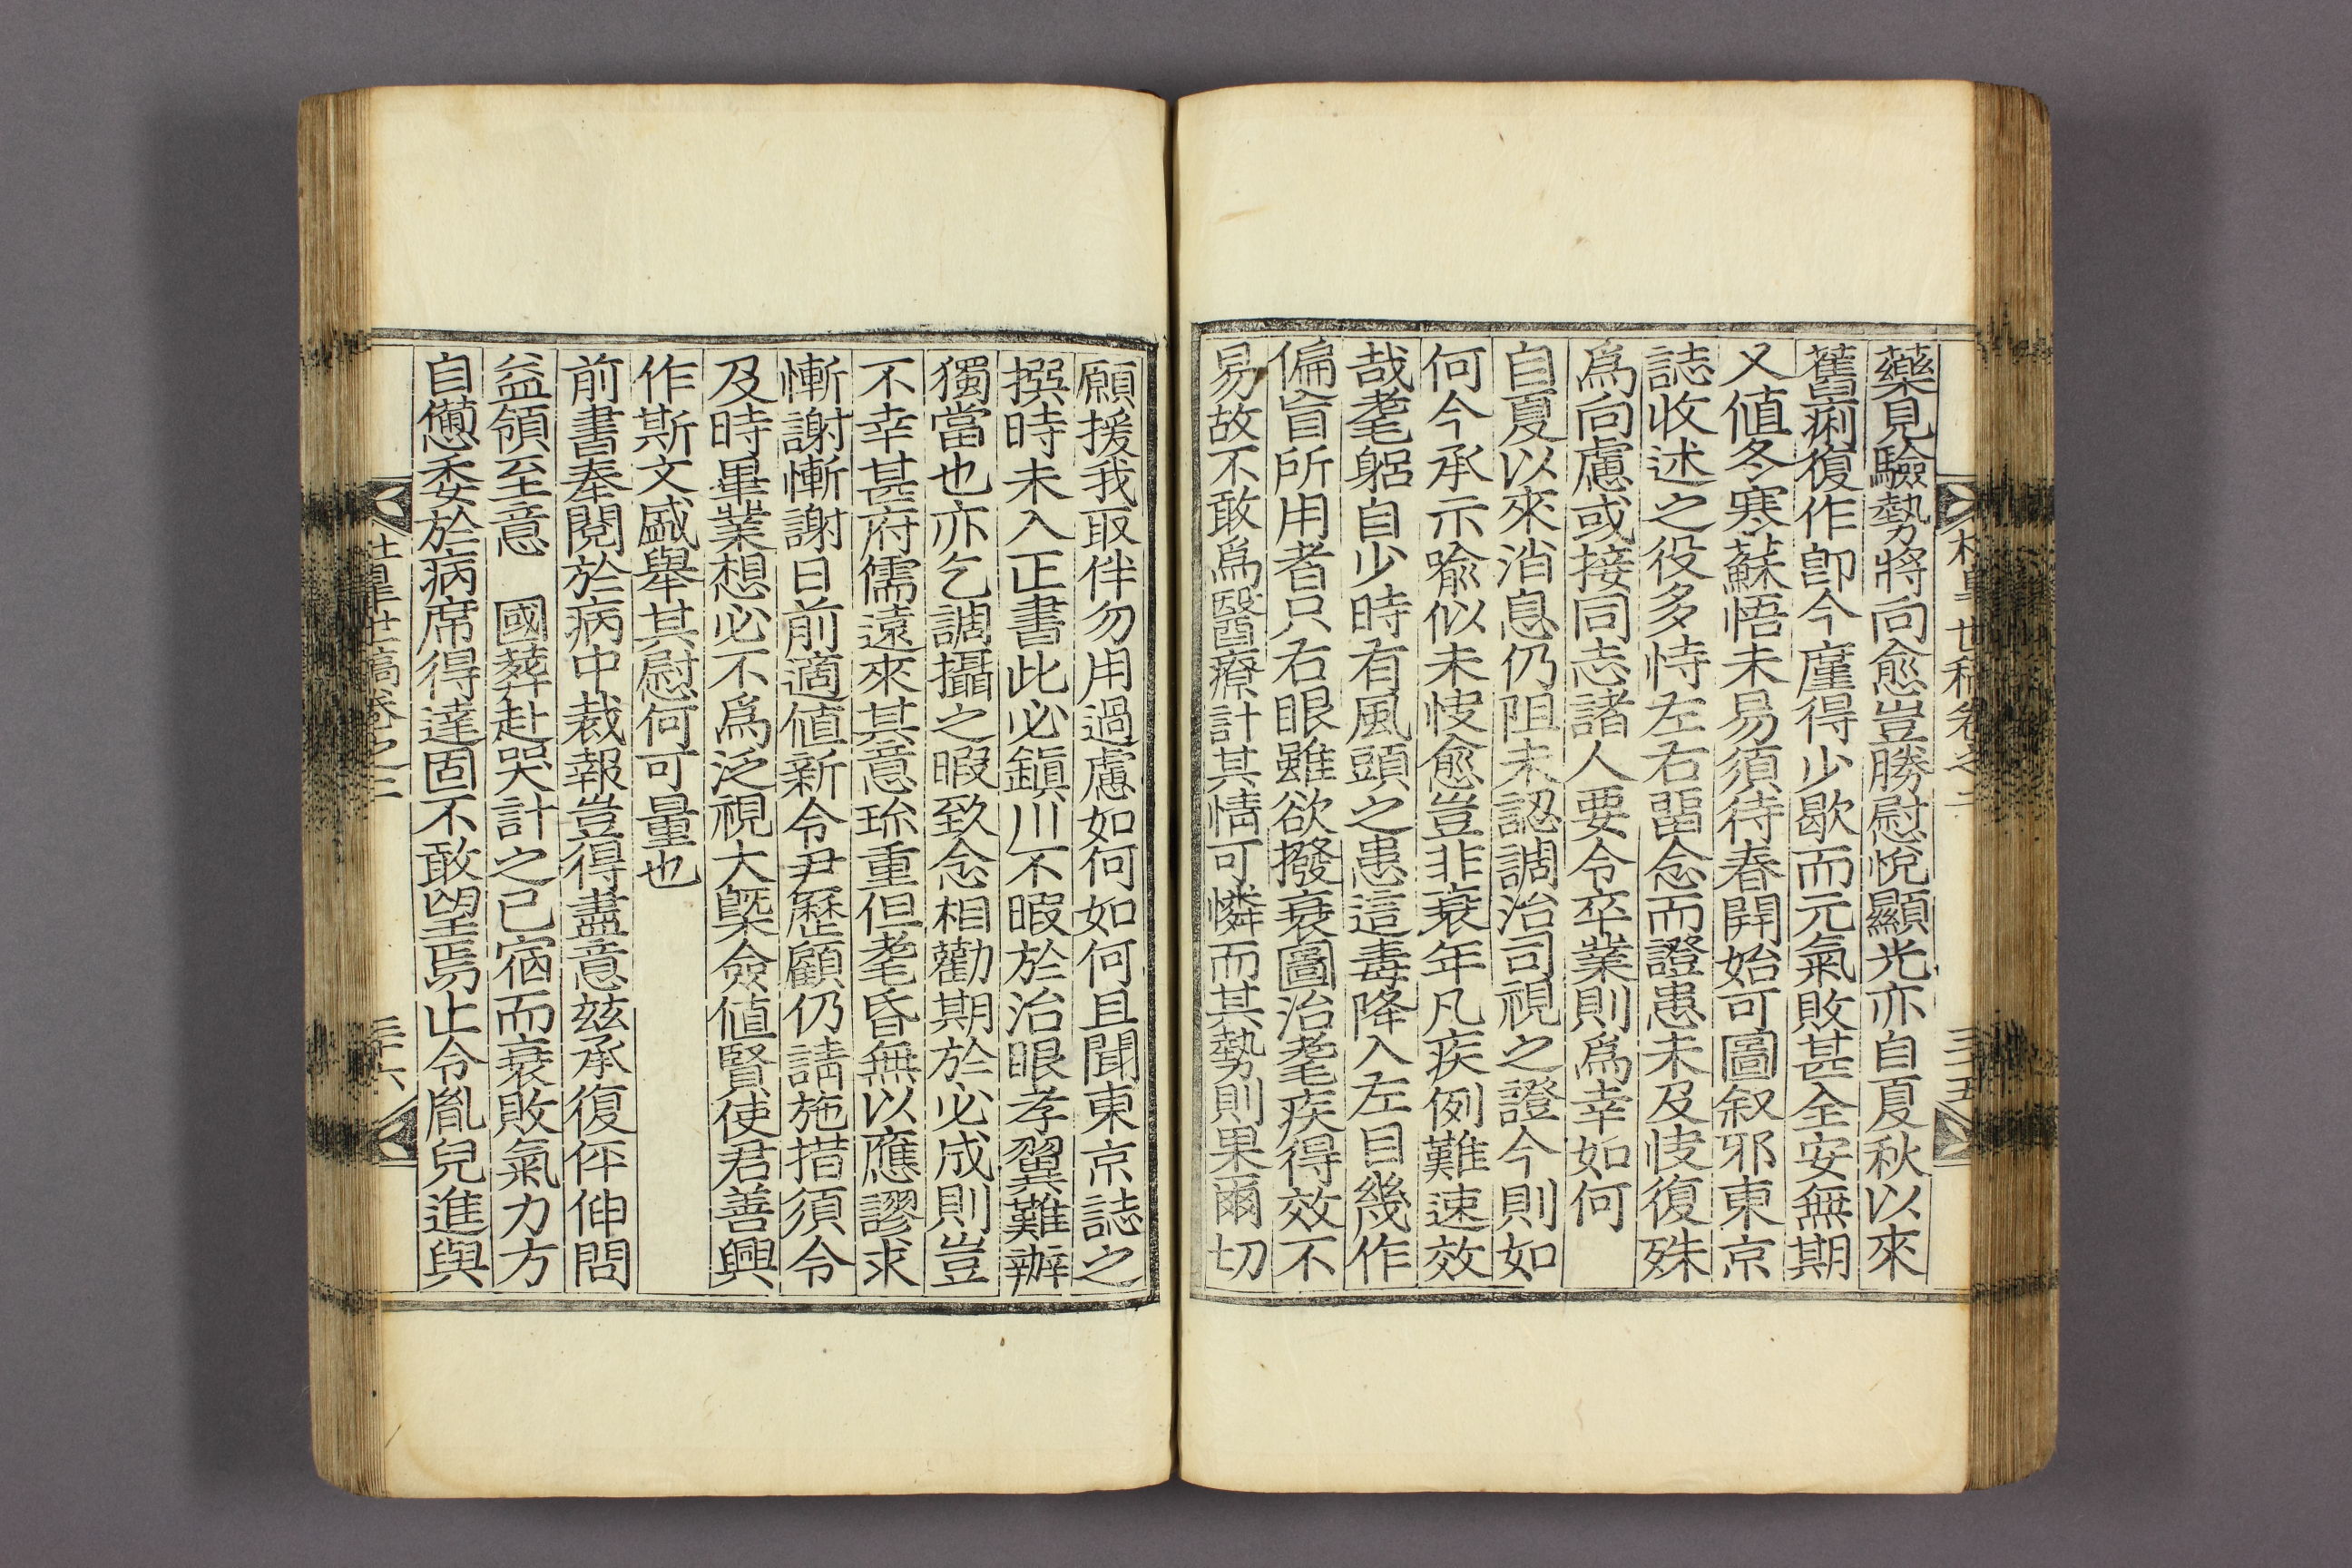 藥見驗勢將向愈豈勝慰悅顯光亦自夏秋以來
舊痢復作卽今廑得少歇而元氣敗甚全安無期
又値冬寒蘇悟未易須待春開始可圖叙邪東京
誌收述之役多恃左右留念而證患未及快復殊
爲向慮或接同志諸人要令卒業則爲幸如何
自夏以來消息仍阻未認調治司視之證今則如
何今承示喩似未快愈豈非衰年凡疾例難速效
哉耄躬自少時有風頭之患這毒降入左目幾作
偏盲所用者只右眼雖欲撥衰圖治耄疾得效不
易故不敢爲醫療計其情可憐而其勢則果爾切
願援我取伴勿用過慮如何如何且聞東京誌之
撰時未入正書此必鎭川不暇於治眼孝翼難辦
獨當也亦乞調攝之暇致念相勸期於必成則豈
不幸甚府儒遠來其意珎重但耄昏無以應謬求
慚謝慚謝日前適値新令尹歷顧仍請施措須令
及時畢業想必不爲泛視大槩僉値賢使君善興
作斯文盛舉其慰何可量也
前書奉閱於病中裁報豈得盡意玆承復伻伸問
益領至意 國葬赴哭計之已宿而衰敗氣力方
自憊委於病席得達固不敢望焉止令胤兒進與
世稿卷之三
三十六